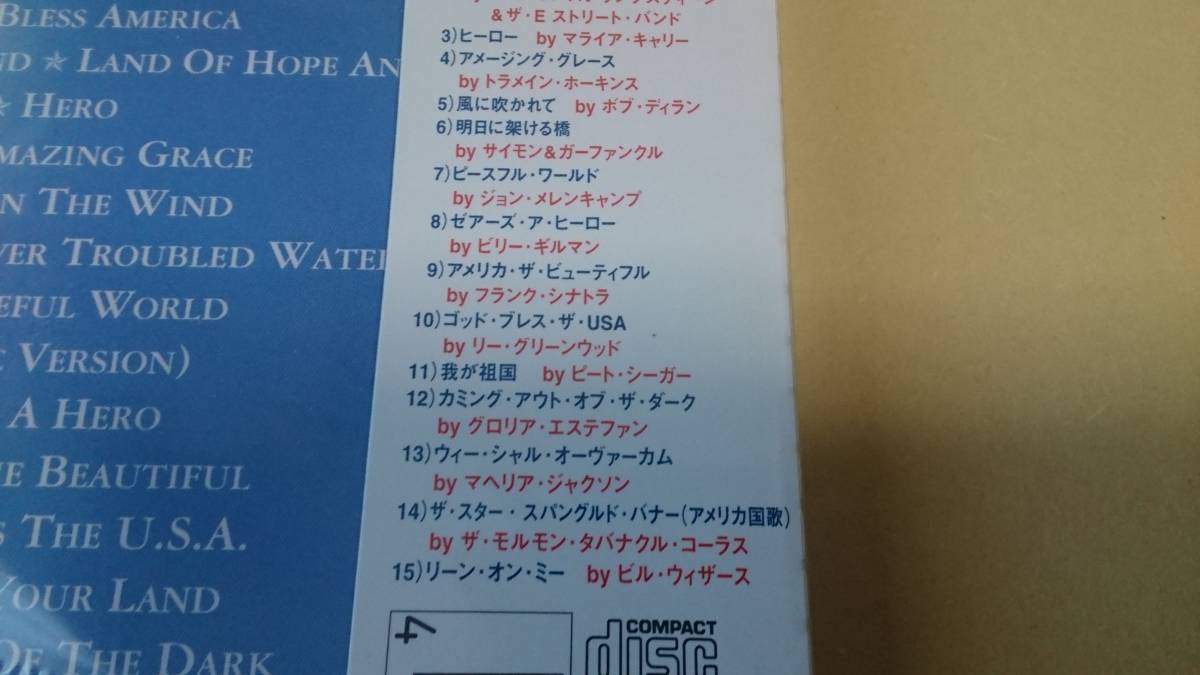 BLESS AMERICA
ND ★ LAND OF HOPE AN
★ HERO
MAZING GRACE
N THE WIND
VER TROUBLED WATE
EFUL WORLD
C VERSION)
A HERO
HE BEAUTIFUL
S THE U.S.A.
YOUR LAND
OF THE DARK
&ザ・E ストリート・バンド
3)ヒーロー by マライア・キャリー
4)アメージング・グレース
by トラメイン・ホーキンス
5)風に吹かれて by ボブ・ディラン
6)明日に架ける橋
by サイモン&ガーファンクル
7)ピースフル・ワールド
by ジョン・メレンキャンプ
8)ゼアーズ・ア・ヒーロー
by ビリー・ギルマン
9)アメリカ・ザ・ビューティフル
by フランク・シナトラ
10)ゴッド・ブレス・ザ・USA
by リー・グリーンウッド
11)我が祖国 by ピート・シーガー
12)カミング・アウト・オブ・ザ・ダーク
by グロリア・エステファン
13)ウィー・シャル・オーヴァーカム
by マヘリア・ジャクソン
14)ザ・スター・スパングルド・バナー(アメリカ国歌)
by ザ・モルモン・タバナクル・コーラス
15)リーン・オン・ミー by ビル・ウィザース
COMPACT
disc